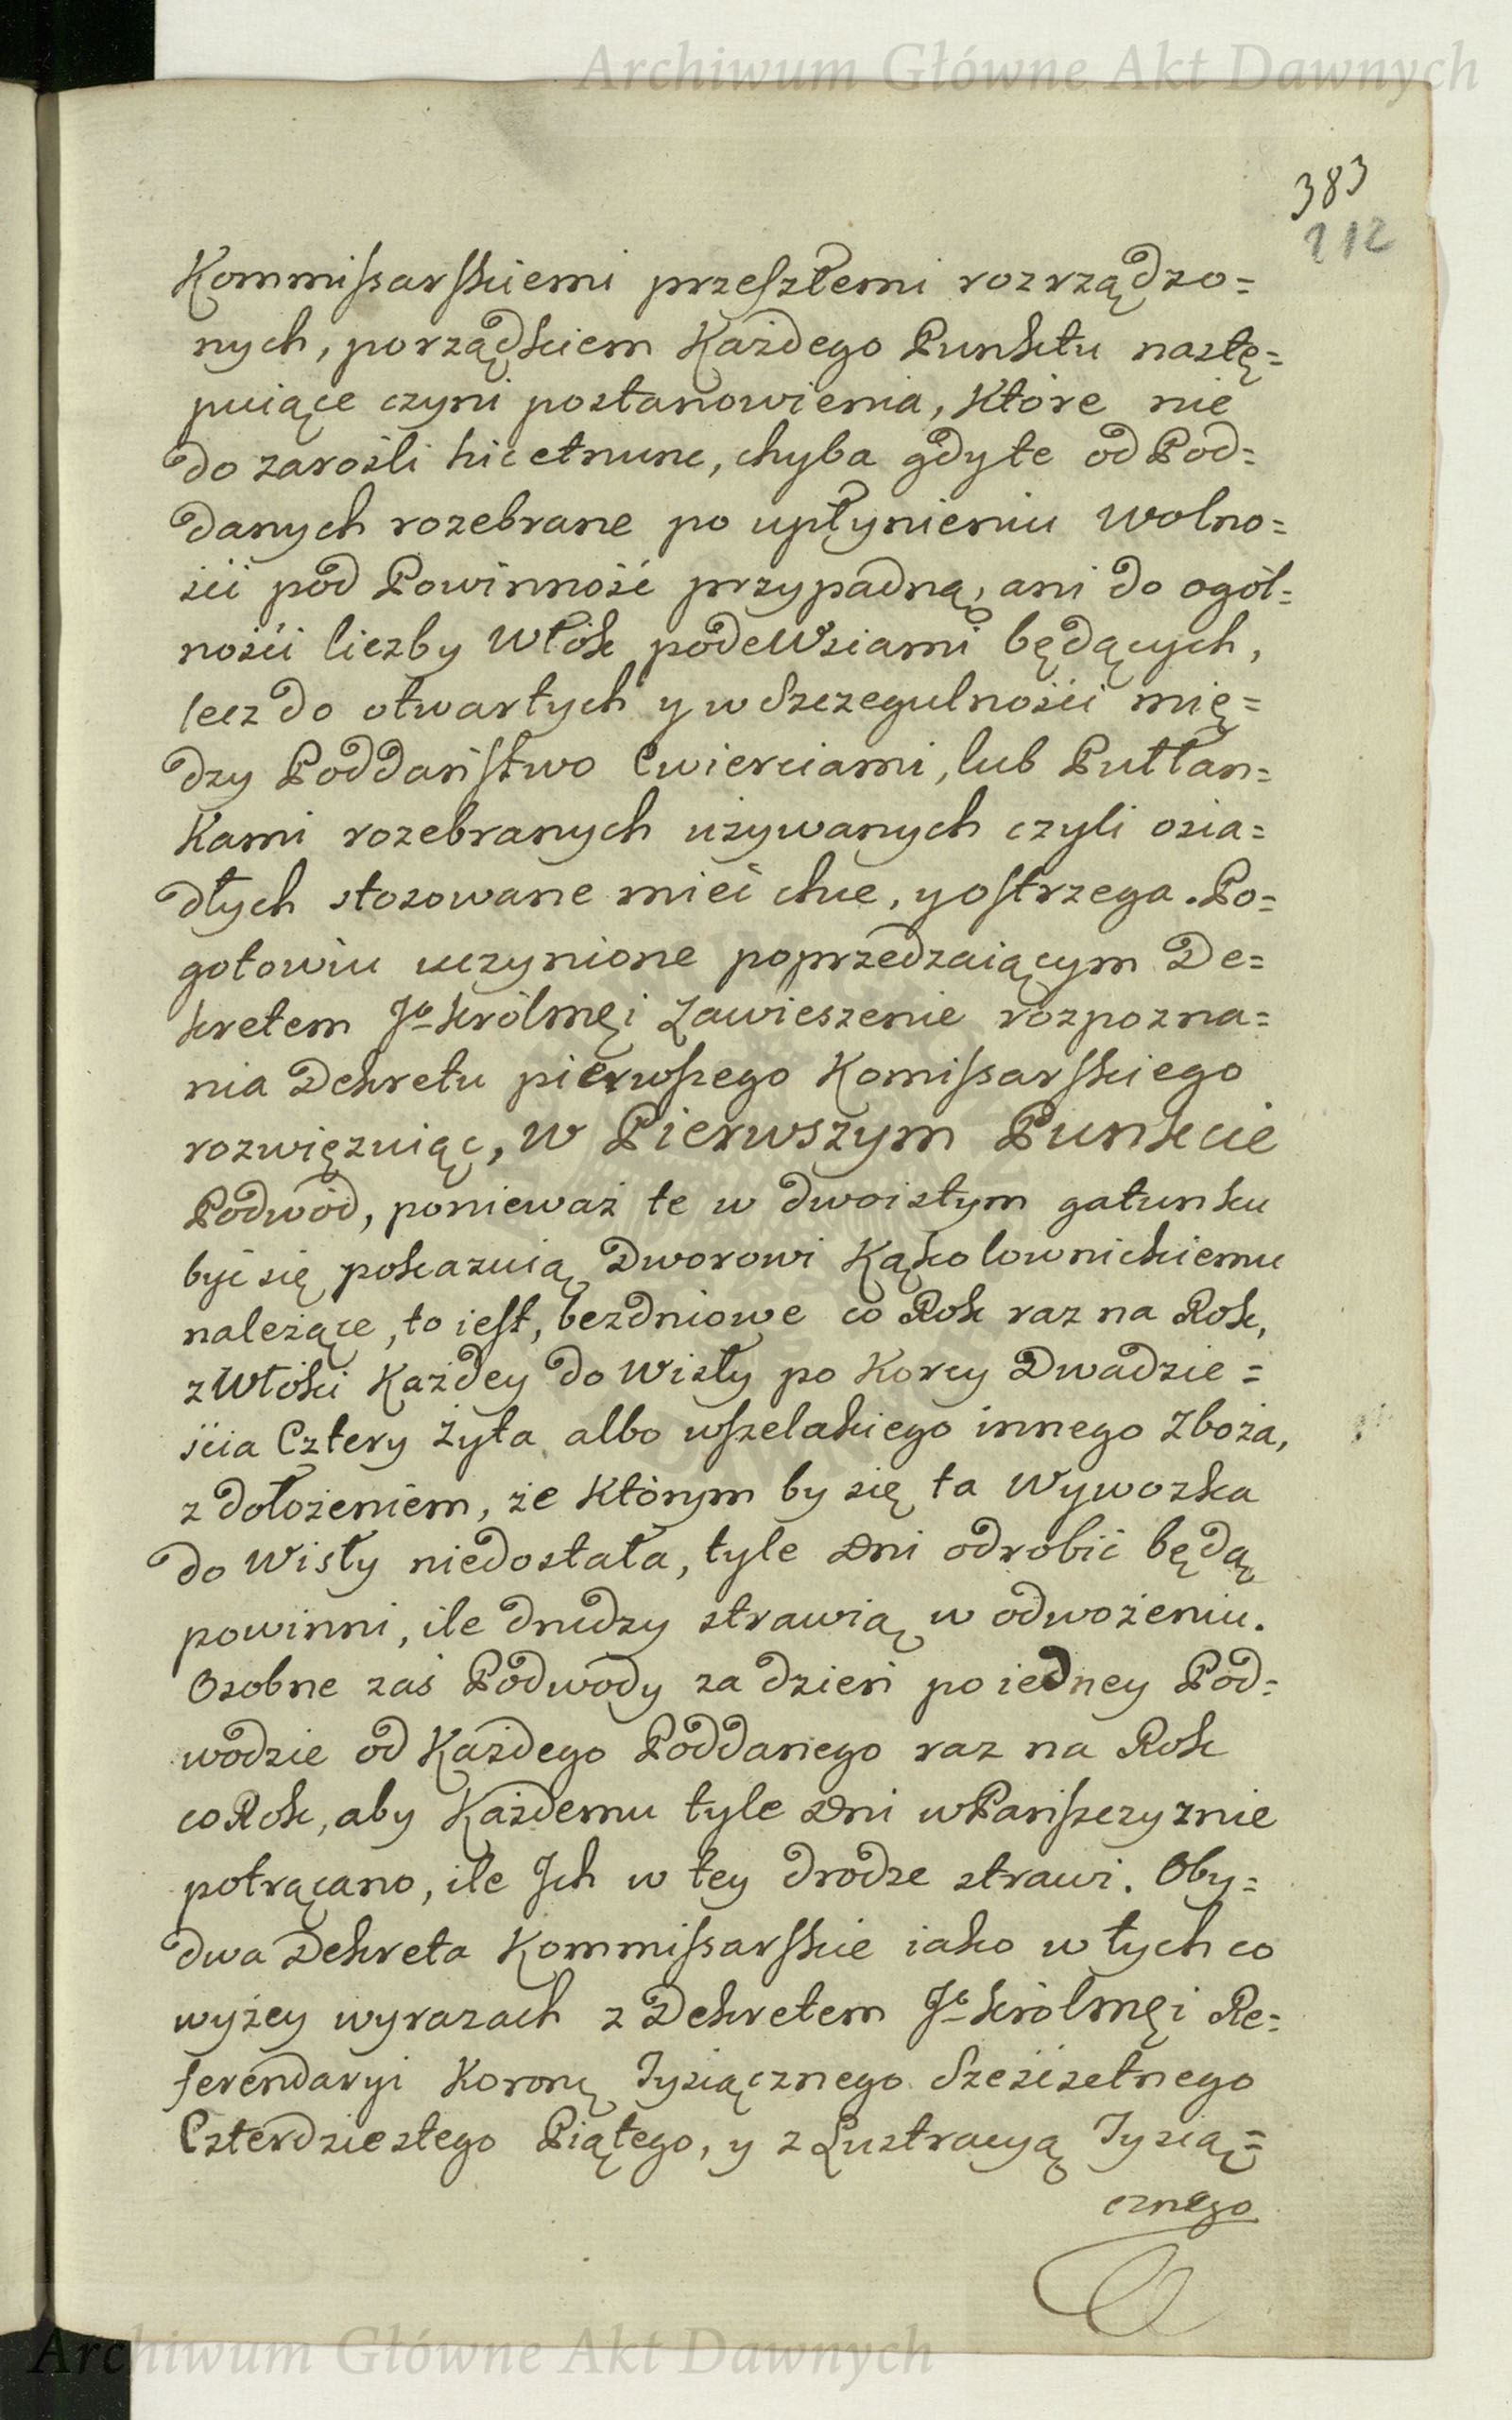 Archiwum Główne Akt Dawnych
383
212
Kommissarskiemi przeszłemi rozrządzo=
nych, porządkiem Każdego Punktu nastę=
puiące czyni postanowienia, Które nie
do zarośli hic et nunc, chyba gdy te od Pod=
danych rozebrane po upłynieniu wolno=
ści pod Powinność przypadną, ani do ogól=
ności liczby Włók pode Wsiami będących,
lecz do otwartych y w Szczegulności mię=
dzy Poddaństwo Cwierciami, lub Pułłan=
Kami rozebranych używanych czyli osia=
dłych stosowane mieć chce, y ostrzega. Po=
gotowiu uczynione poprzedzaiącym De=
kretem Jo Królmęi Zawieszenie rozpozna=
nia Dekretu pierwszego Komissarskiego
rozwięzuiąc, w Pierwszym Punkcie
Podwód, ponieważ te w dwoistym gatunku
być się pokazuią Dworowi Kąkolownickiemu
należące, to iest, bezdniowe co Rok raz na Rok,
z Włóki Każdey do Wisły po Korcy Dwadzie=
ścia Cztery żyta albo wszelakiego innego Zboża,
z dołożeniem, że Którym by się ta Wywozka
do Wisły niedostała, tyle Dni odrobić będą
powinni, ile drudzy strawią w odwożeniu.
Osobne zaś Podwody za dzień po iedney Pod=
wodzie od Każdego Poddanego raz na Rok
co Rok, aby Każdemu tyle Dni w Pańszczyznie
potrącano, ile Ich w tey drodze strawi. Oby=
dwa Dekreta Kommissarskie iako w tych co
wyżey wyrazach z Dekretem Jo Królmęi Re=
ferendaryi Koronę Tysiącznego Sześćsetnego
Czterdziestego Piątego, y z Lustracyą Tysią=
cznego
Archiwum Główne Akt Dawnych